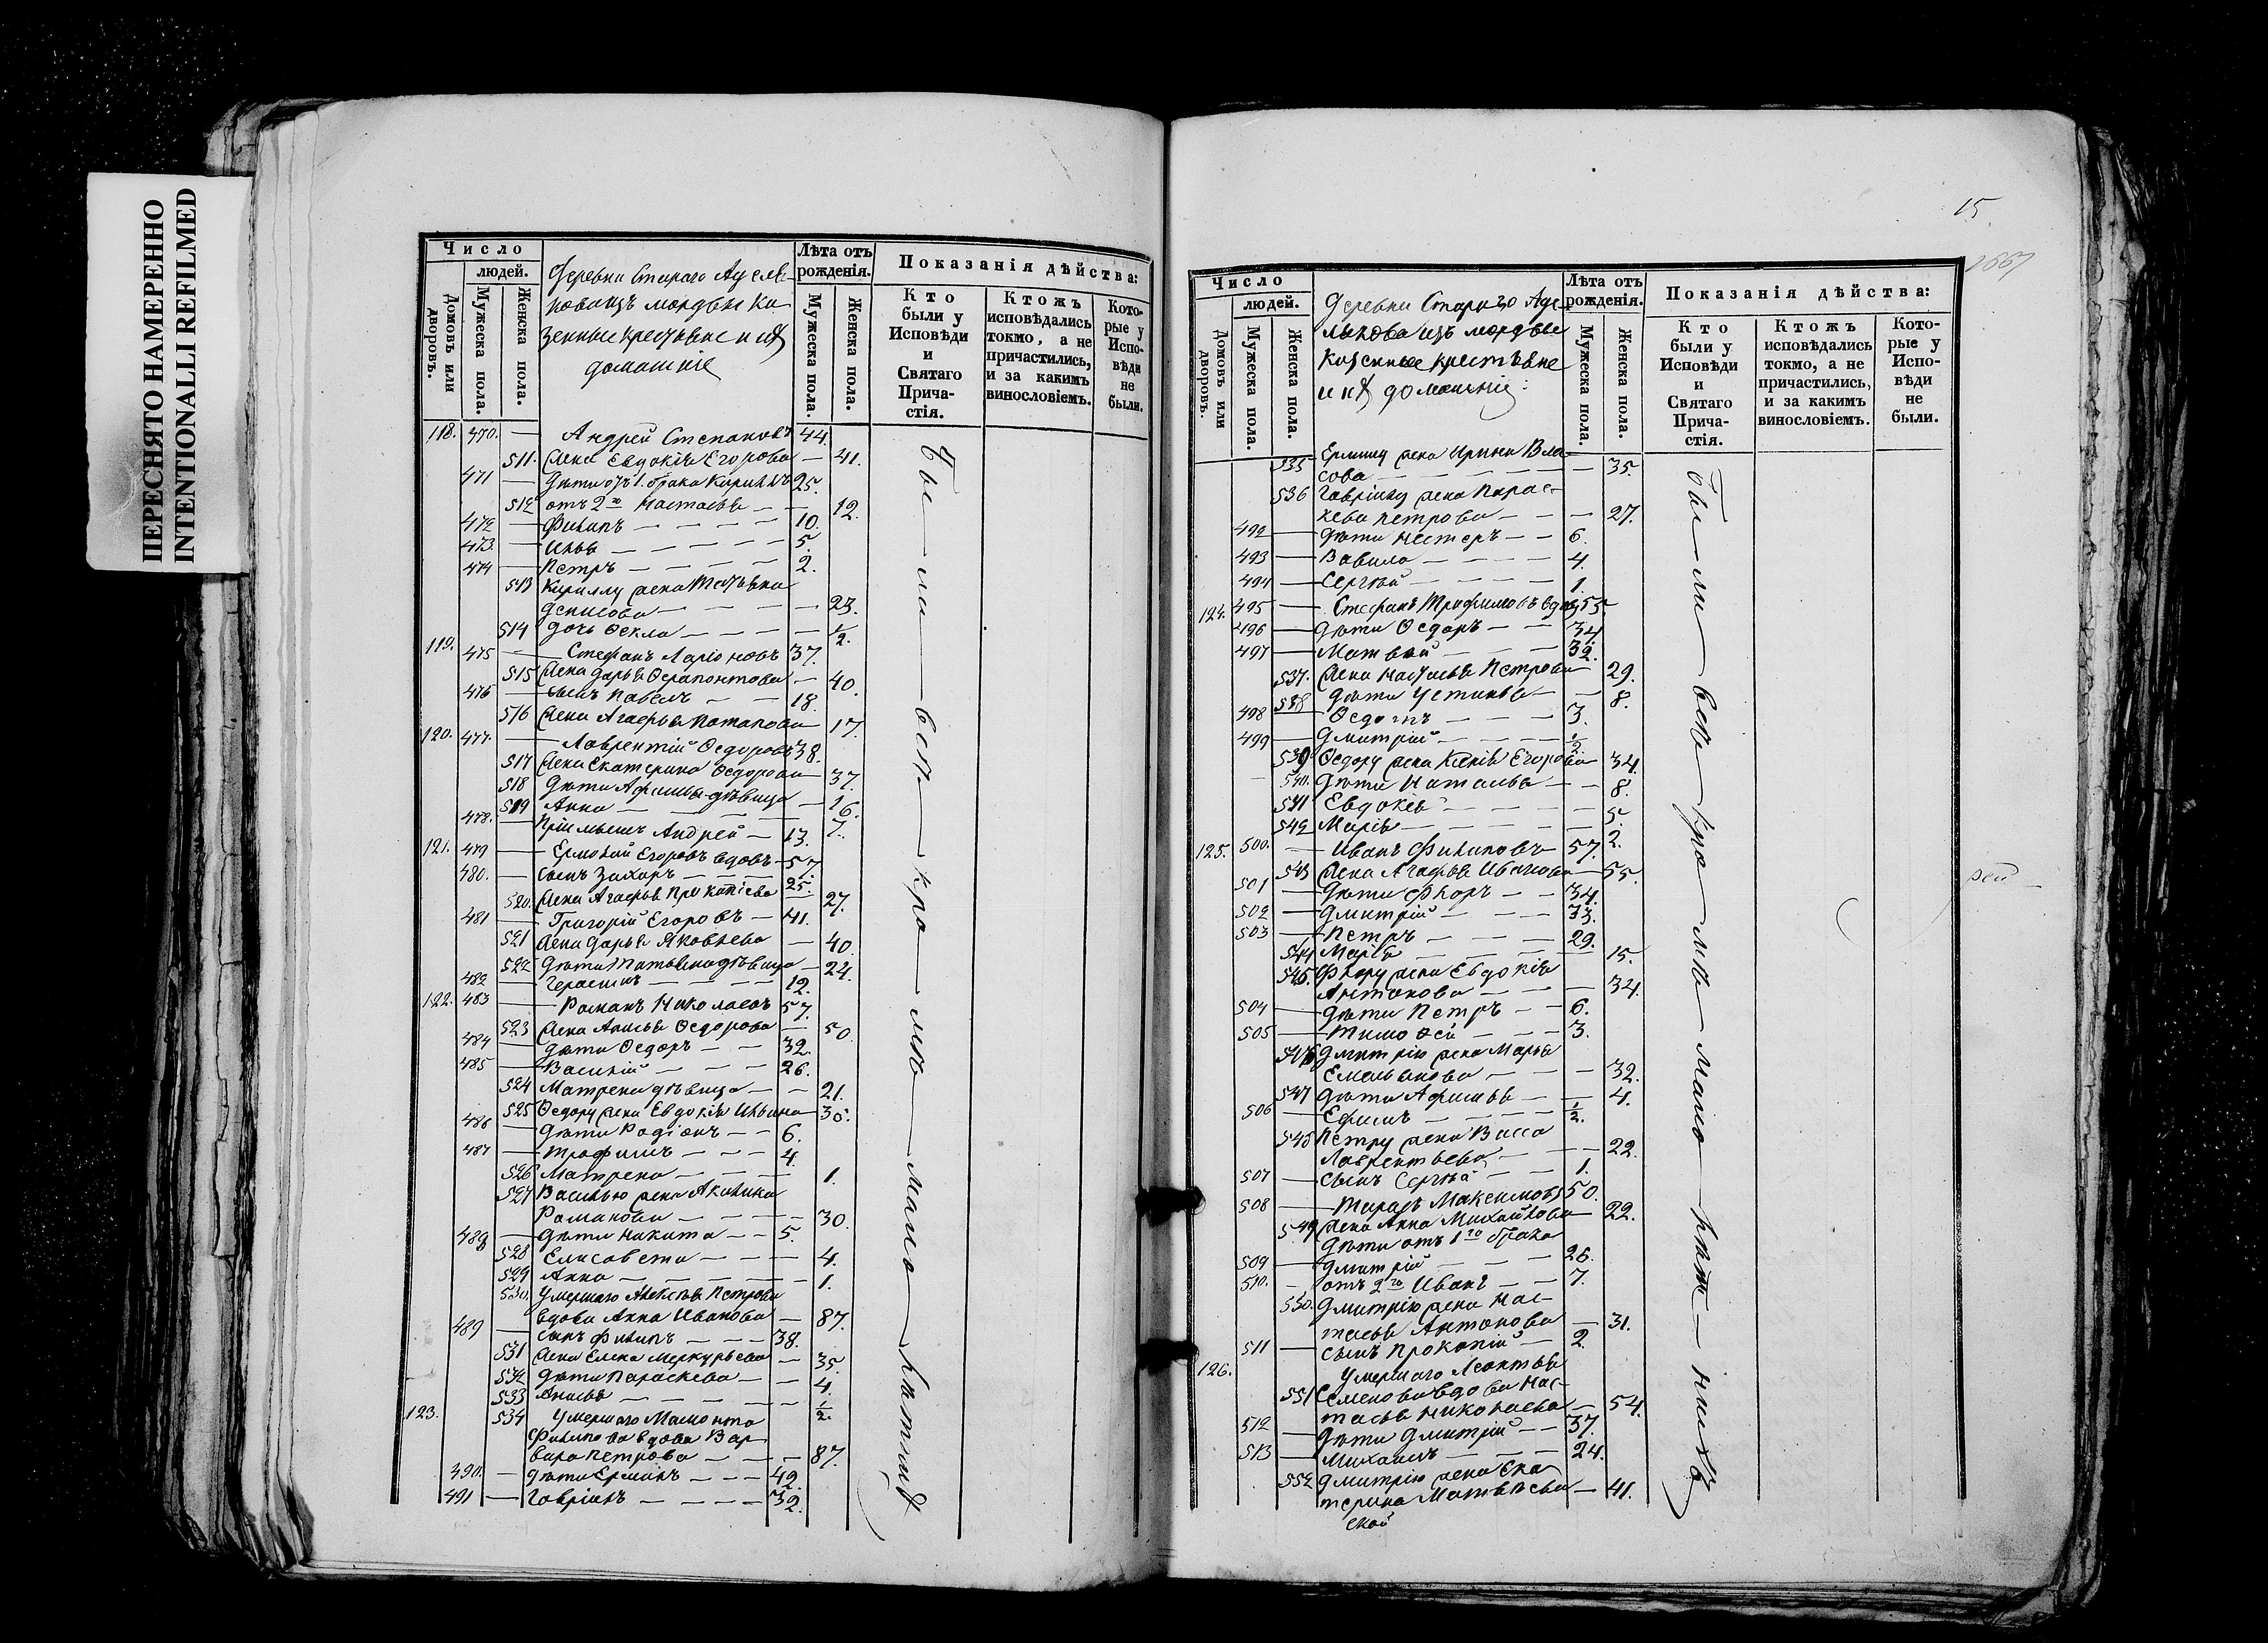 ПЕРЕСНЯТО НАМЕРЕННО
INTENTIONALLI REFILMED
Число
людей.
Домовъ или дворовъ.
Мужеска пола.
Женска пола.
Деревни Стараго Адель-
кова изъ мордвы ка-
зенные крестьяне и ихъ
домашніе
Лѣта отъ рожденія.
Мужеска пола.
Женска пола.
Показанія дѣйства:
Кто были у Исповѣди и Святаго Прича- стія.
Ктожъ исповѣдались токмо, а не причастились, и за какимъ винословіемъ.
Кото- рые у Испо- вѣди не были.
118. 470. — Андрей Степановъ 44.
511. Жена Евдокія Егорова — 41.
471 — Дѣти отъ 1. брака Кирилъ 25.
512 отъ 2го Настасья — — 12.
472 — Филипъ — — — — 10.
473. — Илья — — — — 5.
474 — Петръ — — — — 2.
513 Кириллу жена Татьяна
Денисова — — — — 23.
514 дочь Ѳекла — — — — 1/2.
119. 475 — Стефанъ Ларіоновъ 37.
515 Жена Дарья Ѳерапонтова — 40.
476 — сынъ Павелъ — — 18.
516 Жена Агафья Потапова — 17.
120. 477. — Лаврентій Ѳедоровъ 38.
517 Жена Екатерина Ѳедорова — 37.
518 Дѣти Афимья дѣвица — 16.
519 Анна — — — — 7.
478. — Пріемышъ Андрей — 13.
121. 479 — Ермолай Егоровъ вдовъ — 57.
480. — Сынъ Захаръ — — — 25.
520. Жена Агафья Прокопіева — 27.
481 — Григорій Егоровъ — 41.
521 Жена Дарья Яковлева — 40.
522 Дѣти Татьяна дѣвица — 24.
482 — Герасимъ — — — 12.
122. 483 — Романъ Николаевъ 57.
523 Жена Анисья Ѳедорова — 50.
484 — дѣти Ѳедоръ — — 32.
485 — Василій — — — 26.
524 Матрена дѣвица — — 21.
525 Ѳедору жена Евдокія Ильина — 35.
486 — Дѣти Родіонъ — — 6.
487 — Трофимъ — — — 4.
526 Матрена — — — 1.
527 Василью жена Акилина
Романова — — — — 30.
488 — Дѣти Никита — — 5.
528 Елисавета — — — 4.
529 Анна — — — — — 1.
530. Умершаго Алексѣя Петрова
вдова Анна Иванова — 87.
489 — сынъ Филипъ — — — 38.
531 Жена Елена Меркурьева — 35.
532 Дѣти Параскева — — 4.
533 Анисья — — — — 1/2.
123. 534 Умершаго Мамонта
Филипова вдова Вар-
вара Петрова — — — 87.
490. — дѣти Ермилъ — — — 42.
491 — Гавріилъ — — — — 32.
Бы — ли — вси — кро — мѣ — мало — лѣтнихъ
15.
Число
людей.
Домовъ или дворовъ.
Мужеска пола.
Женска пола.
Деревни Стараго Аде-
лькова изъ мордвы
казенные крестьяне
и ихъ домашніе:
Лѣта отъ рожденія.
Мужеска пола.
Женска пола.
Показанія дѣйства:
Кто были у Исповѣди и Святаго Прича- стія.
Ктожъ исповѣдались токмо, а не причастились, и за какимъ винословіемъ.
Кото- рые у Испо- вѣди не были.
535 Ермилу жена Ирина Вла-
сова — — — — — 35.
536 Гаврілу жена Парас-
кева Петрова — — — 27.
492 — Дѣти Нестеръ — — 6.
493 — Вавила — — — — 4.
494 — Сергѣй — — — — 1.
124. 495 — Стефанъ Трофимовъ вдовъ 55
496 — Дѣти Ѳедоръ — — 34.
497 — Матвѣй — — — 32.
537. Жена Настасья Петрова — 29.
538 Дѣти Устинья — — 8.
498 — Ѳедотъ — — — 3.
499 — Дмитрій — — — — 1/2.
539 Ѳедору жена Ксенія Егорова — 34.
540. Дѣти Наталья — — 8.
541 Евдокія — — — — 5.
542 Марія — — — — — 2.
125. 500. — Иванъ Филиповъ — 57.
543 Жена Агафья Иванова — 55.
501 — Дѣти Флоръ — — 34.
502 — Дмитрій — — — 33.
503 — Петръ — — — — 29.
544 Марія — — — — 15.
545. Флору жена Евдокія
Антонова — — — 34.
504 — дѣти Петръ — — 6.
505 — Тимоѳей — — — 3.
546 Дмитрію жена Марья
Емельянова — — — 32.
547 Дѣти Афимья — — 4.
506 — Ефимъ — — — — 1/2.
548 Петру жена Васса
Лаврентьева — — — 22.
507 — Сынъ Сергѣй — — 1.
508 — Тарасъ Максимовъ 50.
549 Жена Анна Михайлова — 22.
Дѣти отъ 1го брака
509 — Дмитрій — — — 26.
510. — отъ 2го Иванъ — — 7.
550. Дмитрію жена Нас-
тасья Антонова — 31.
511 — Сынъ Прокопій — 2.
126. Умершаго Леонтья
551 Семенова вдова Нас-
тасья Николаева — 54.
512 — Дѣти Дмитрій — — 37.
513 — Михаилъ — — — 24.
552 Дмитрію жена Ека-
терина Матвѣева — 41.
ской
бы — ли — вси — кро — мѣ — мало — лѣт — нихъ
рей